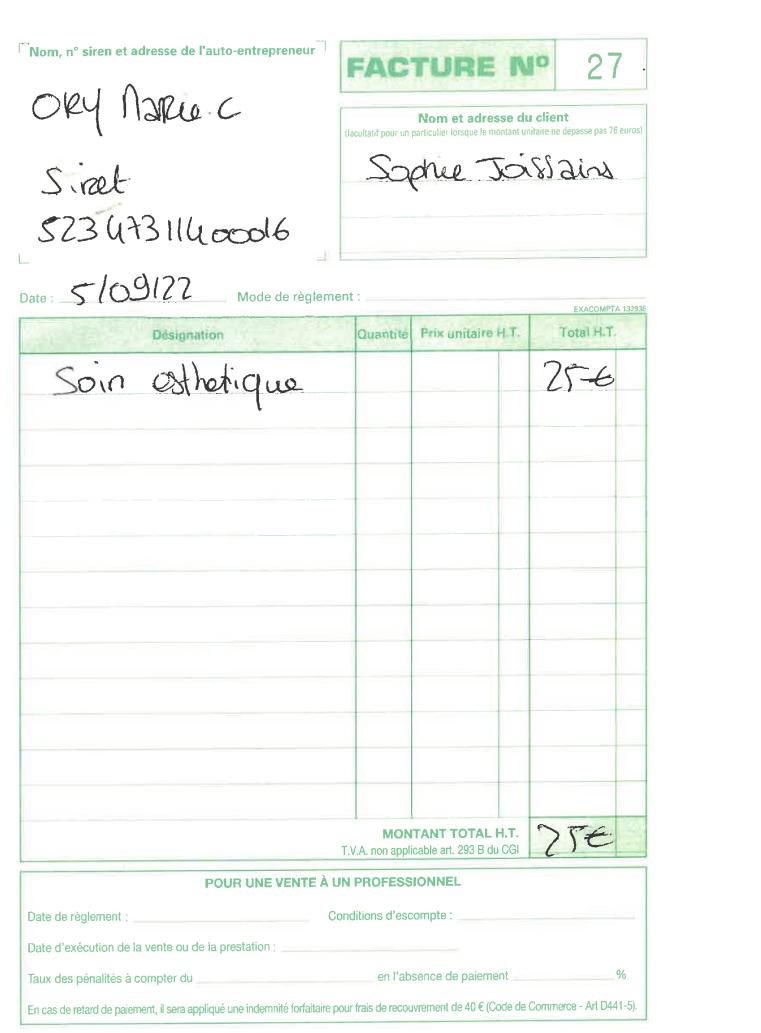 Nom, n° siren et adresse de l'auto-entrepreneur
ORY Marie.C
Siret
52347311400016
FACTURE N° 27
Nom et adresse du client
(facultatif pour un particulier lorsque le montant unitaire ne dépasse pas 76 euros)
Sophie Joissains
Date : 5/09/22 Mode de règlement :
EXACOMPTA 13293E
Désignation Quantité Prix unitaire H.T. Total H.T.
Soin esthetique 25€
MONTANT TOTAL H.T. 25€
T.V.A. non applicable art. 293 B du CGI
POUR UNE VENTE À UN PROFESSIONNEL
Date de règlement : Conditions d'escompte :
Date d'exécution de la vente ou de la prestation :
Taux des pénalités à compter du en l'absence de paiement %
En cas de retard de paiement, il sera appliqué une indemnité forfaitaire pour frais de recouvrement de 40 € (Code de Commerce - Art D441-5).